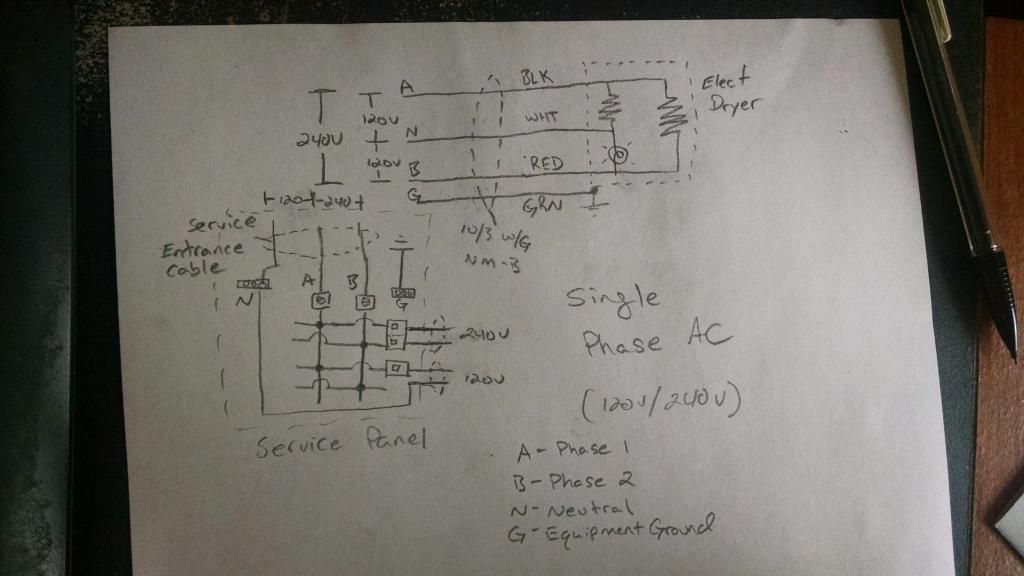 A BLK
Elect
Dryer
240V
120V
N WHT
120V
B RED
G GRN
120 240
10/3 W/G
NM-B
Service
Entrance
Cable
N
A B G
240V
120V
Service Panel
Single
Phase AC
(120V/240V)
A - Phase 1
B - Phase 2
N - Neutral
G - Equipment Ground